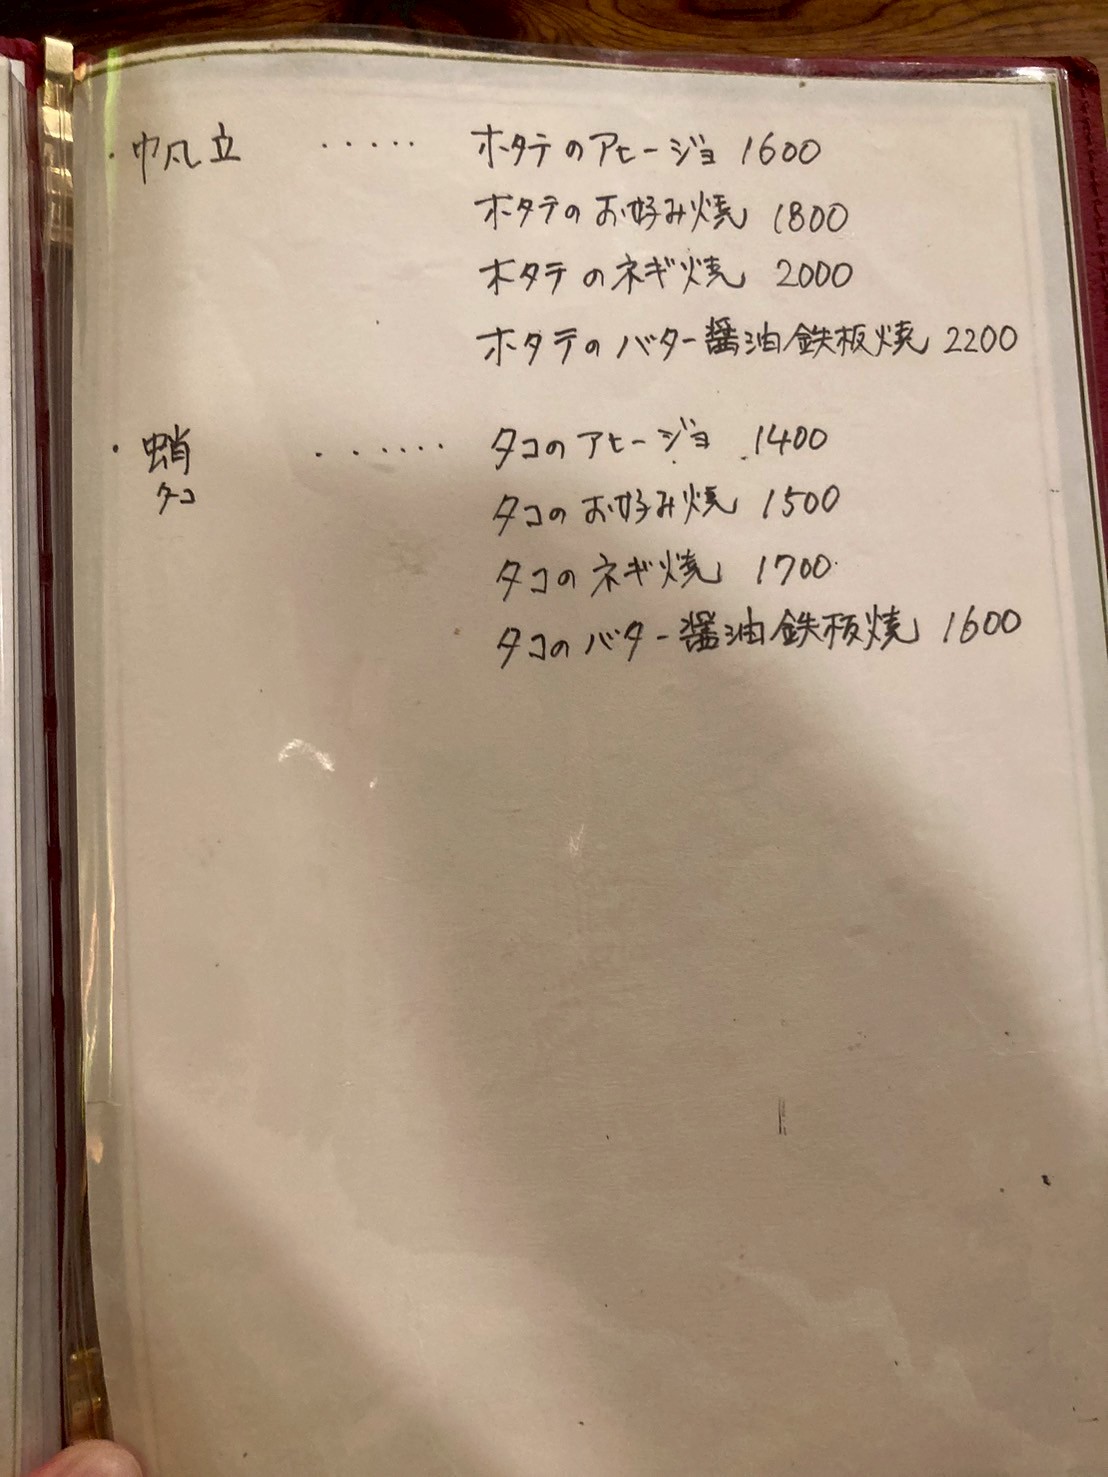 ・帆立 ・・・・・ ホタテのアヒージョ 1600
ホタテのお好み焼 1800
ホタテのネギ焼 2000
ホタテのバター醤油鉄板焼 2200
・蛸 ・・・・・・ タコのアヒージョ 1400
タコ
タコのお好み焼 1500
タコのネギ焼 1700
タコのバター醤油鉄板焼 1600